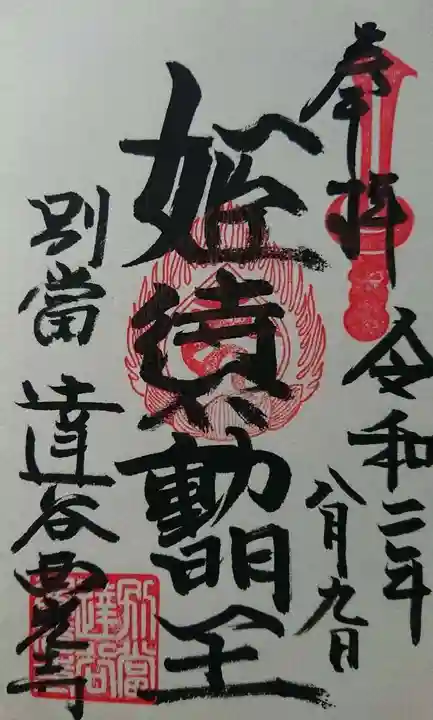 奉拝
令和二年
八月九日
姫待不動明王
別當
達谷西光寺